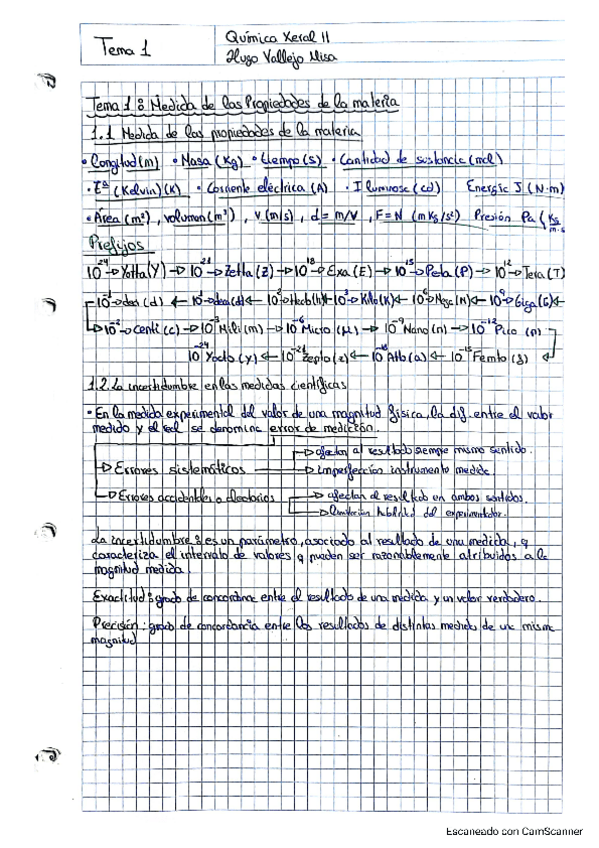 Tema 1
Química Xeral II
Hugo Vallejo Misa
Tema 1: Medida de las Propiedades de la materia
1.1 Medida de las propiedades de la materia
• Longitud (m) • Masa (Kg) • tiempo (s) • Cantidad de sustancia (mol)
• Tª (Kelvin) (K) • Corriente eléctrica (A) • I luminosa (cd) Energía J (N·m)
• Área (m²), volumen (m³), v (m/s), d = m/V, F = N (m Kg/s²) Presión Pa (Kg/m·s
Prefijos
10²⁴ → Yotta (Y) → 10²¹ → Zetta (Z) → 10¹⁸ → Exa (E) → 10¹⁵ → Peta (P) → 10¹² → Tera (T)
10⁻¹ deci (d) ← 10¹ deca (d) ← 10² Hecto (h) ← 10³ Kilo (K) ← 10⁶ Mega (M) ← 10⁹ Giga (G) ←
→ 10⁻² → Centi (c) → 10⁻³ Mili (m) → 10⁻⁶ Micro (μ) → 10⁻⁹ Nano (n) → 10⁻¹² Pico (p)
10⁻²⁴ Yocto (y) ← 10⁻²¹ Zepto (z) ← 10⁻¹⁸ Atto (a) ← 10⁻¹⁵ Femto (f) ←
1.2. La incertidumbre en las medidas científicas
• En la medida experimental del valor de una magnitud física, la dif. entre el valor
medido y el real se denomina error de medición.
→ afectan al resultado siempre mismo sentido.
→ Errores sistemáticos → imperfección instrumento medida.
→ Errores accidentales o aleatorios → afectan al resultado en ambos sentidos.
→ limitación habilidad del experimentador.
La incertidumbre: es un parámetro, asociado al resultado de una medida, q
caracteriza el intervalo de valores q pueden ser razonablemente atribuidos a la
magnitud medida.
Exactitud: grado de concordancia entre el resultado de una medida y un valor verdadero.
Precisión: grado de concordancia entre los resultados de distintas medidas de una misma
magnitud
Escaneado con CamScanner